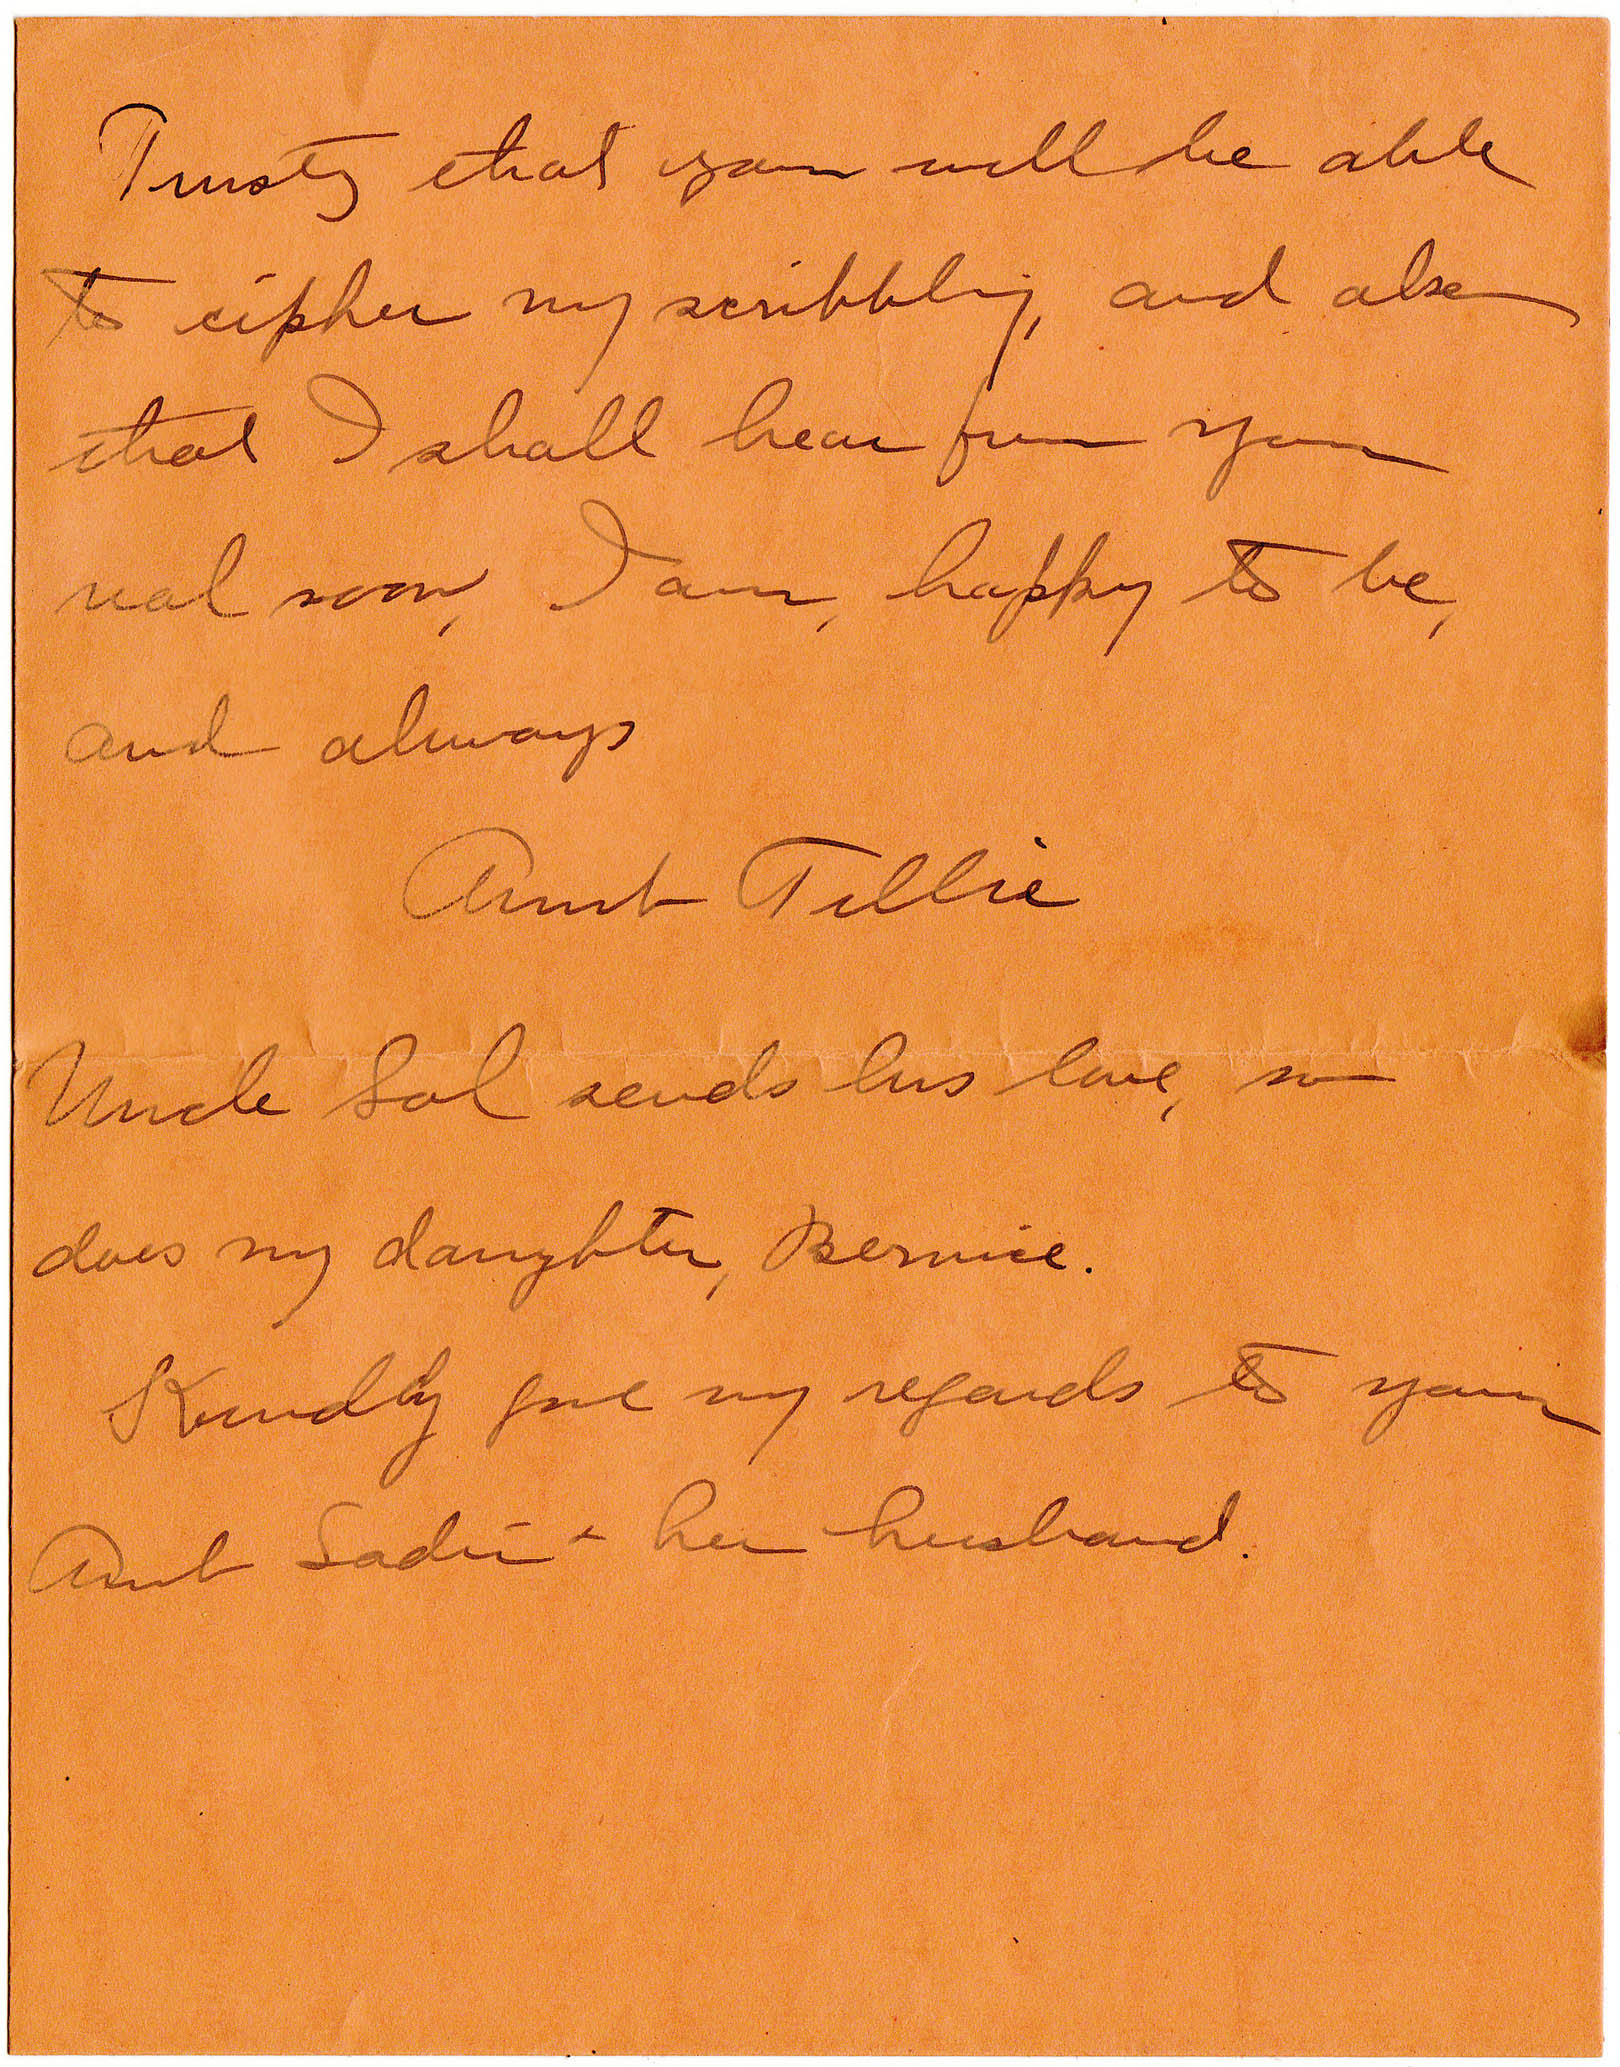 Trusty that you will be able
to cipher my scribbling, and also
that I shall hear from you
real soon, I am, happy to be,
and always
Aunt Tillie
Uncle Sol sends his love, so
does my daughter, Bernice.
Kindly give my regards to your
Aunt Sadie + her husband.